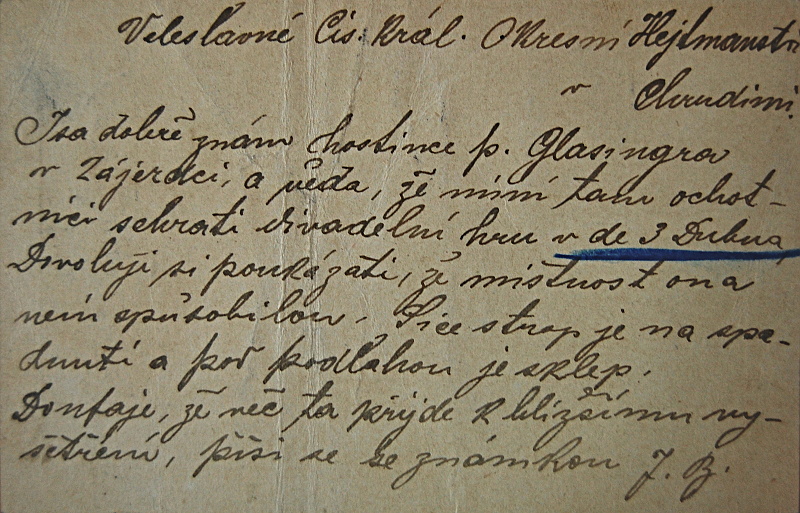 Veleslavné Cís. král. Okresní Hejtmanství
v Chrudimi.
Jsa dobrě znám hostince p. Glasingra
v Zájezdci, a věďa, že míní tam ochot-
níci sehrati divadelní hru v de 3 Dubna,
Dovoluji si poukázati, že místnost ona
není spůsobilou. Sice strop je na spa-
dnutí a poď podlahou je sklep.
Doufaje, že več ta příjde k bližšímu vy-
šetření, píši se se známkou J. B.